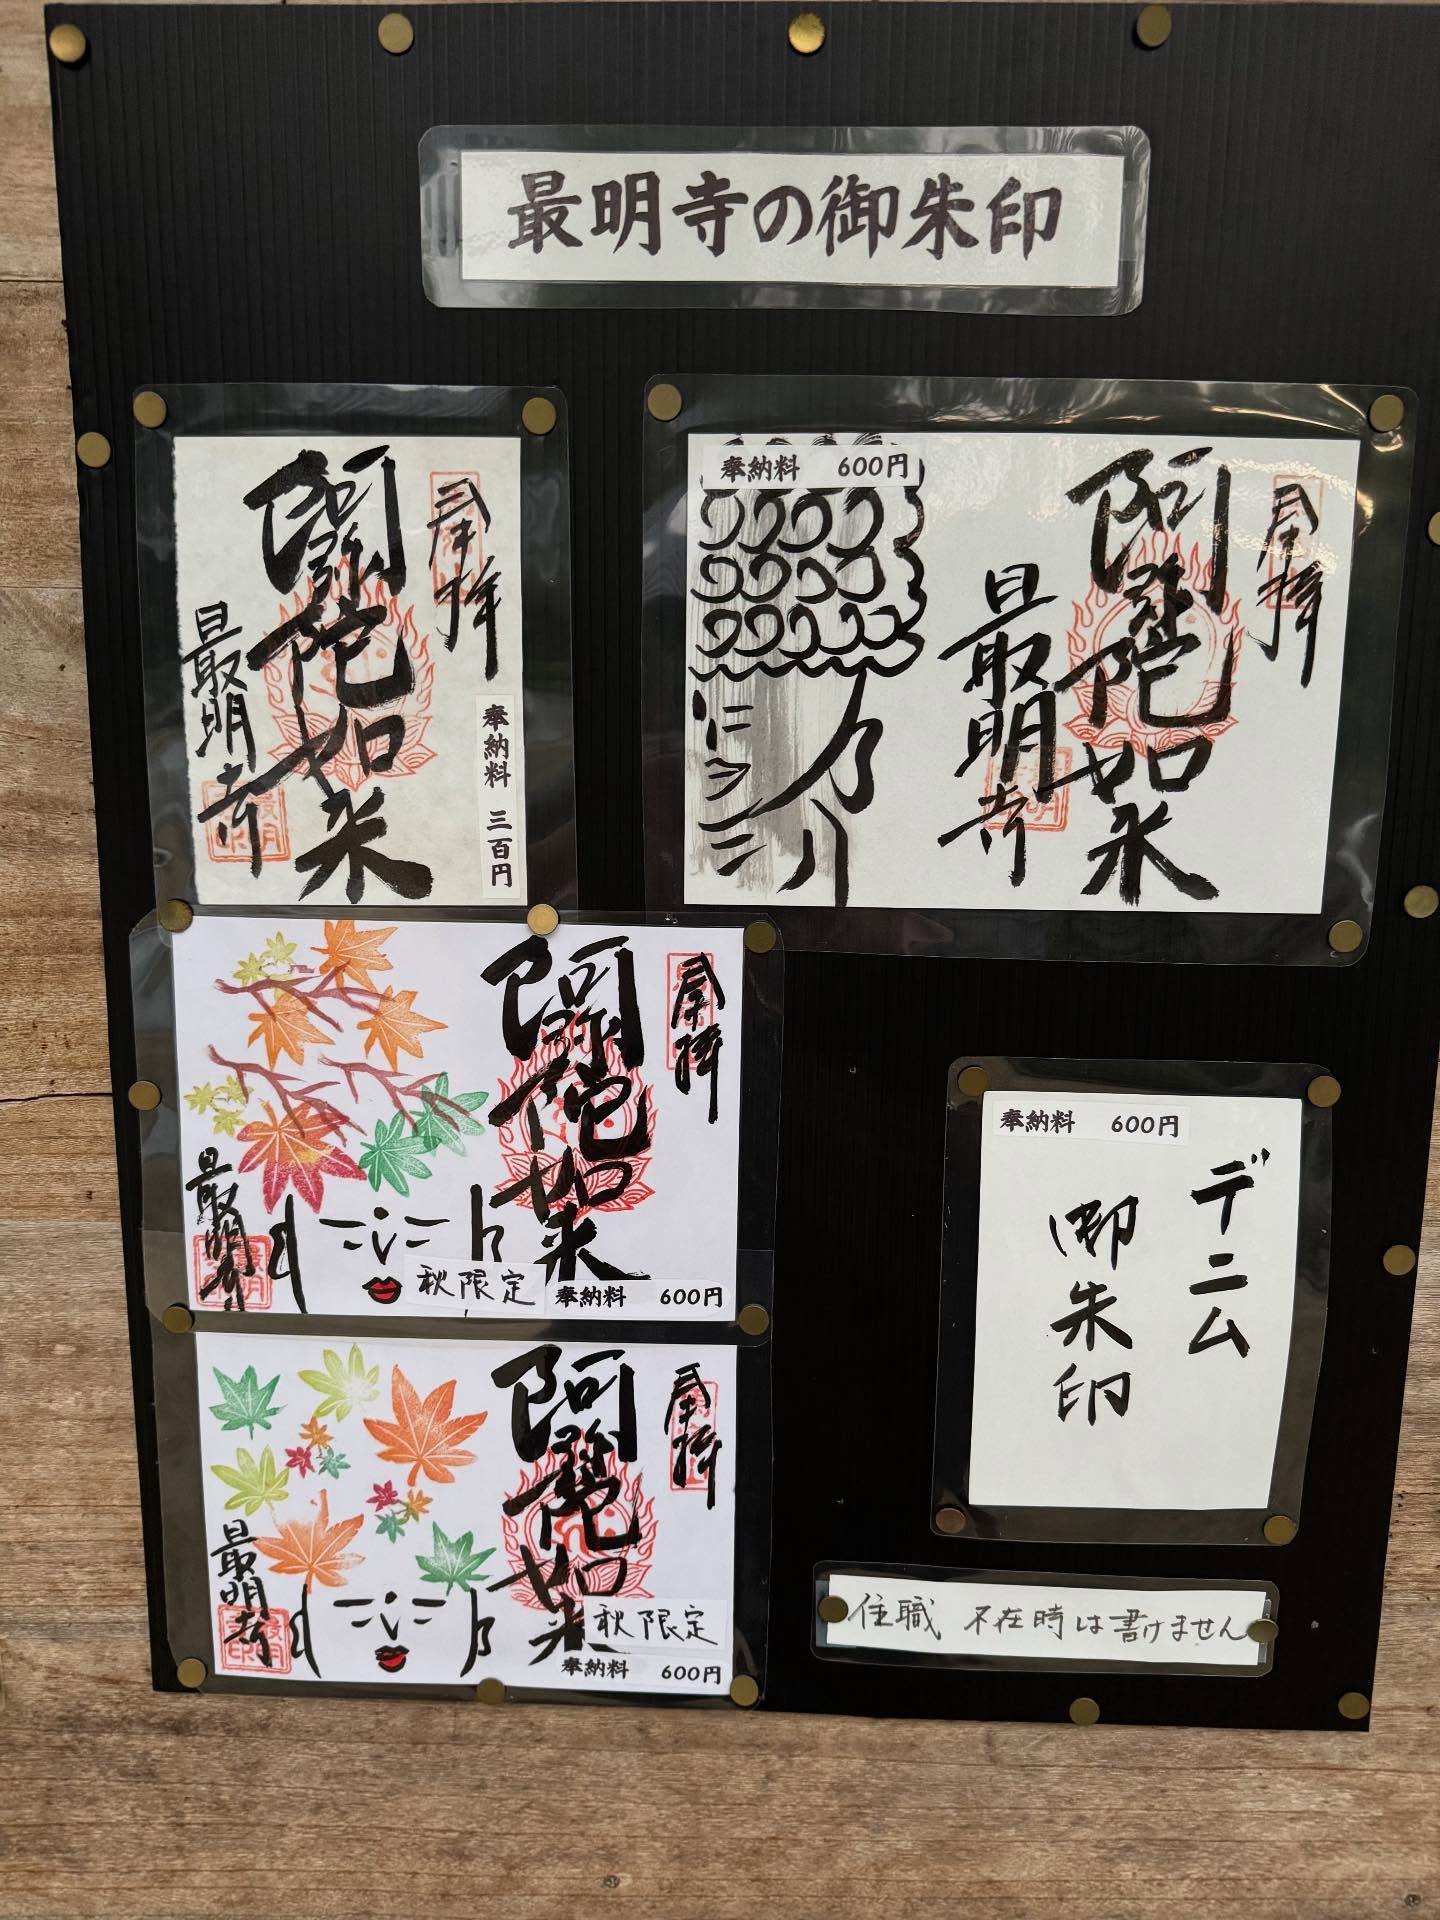 最明寺の御朱印
奉拝
阿弥陀如来
最明寺
奉納料 三百円
奉納料 600円
奉拝
阿弥陀如来
最明寺
奉拝
阿弥陀如来
最明寺
秋限定
奉納料 600円
奉拝
阿弥陀如来
最明寺
秋限定
奉納料 600円
奉納料 600円
デニム
御朱印
住職 不在時は書けません